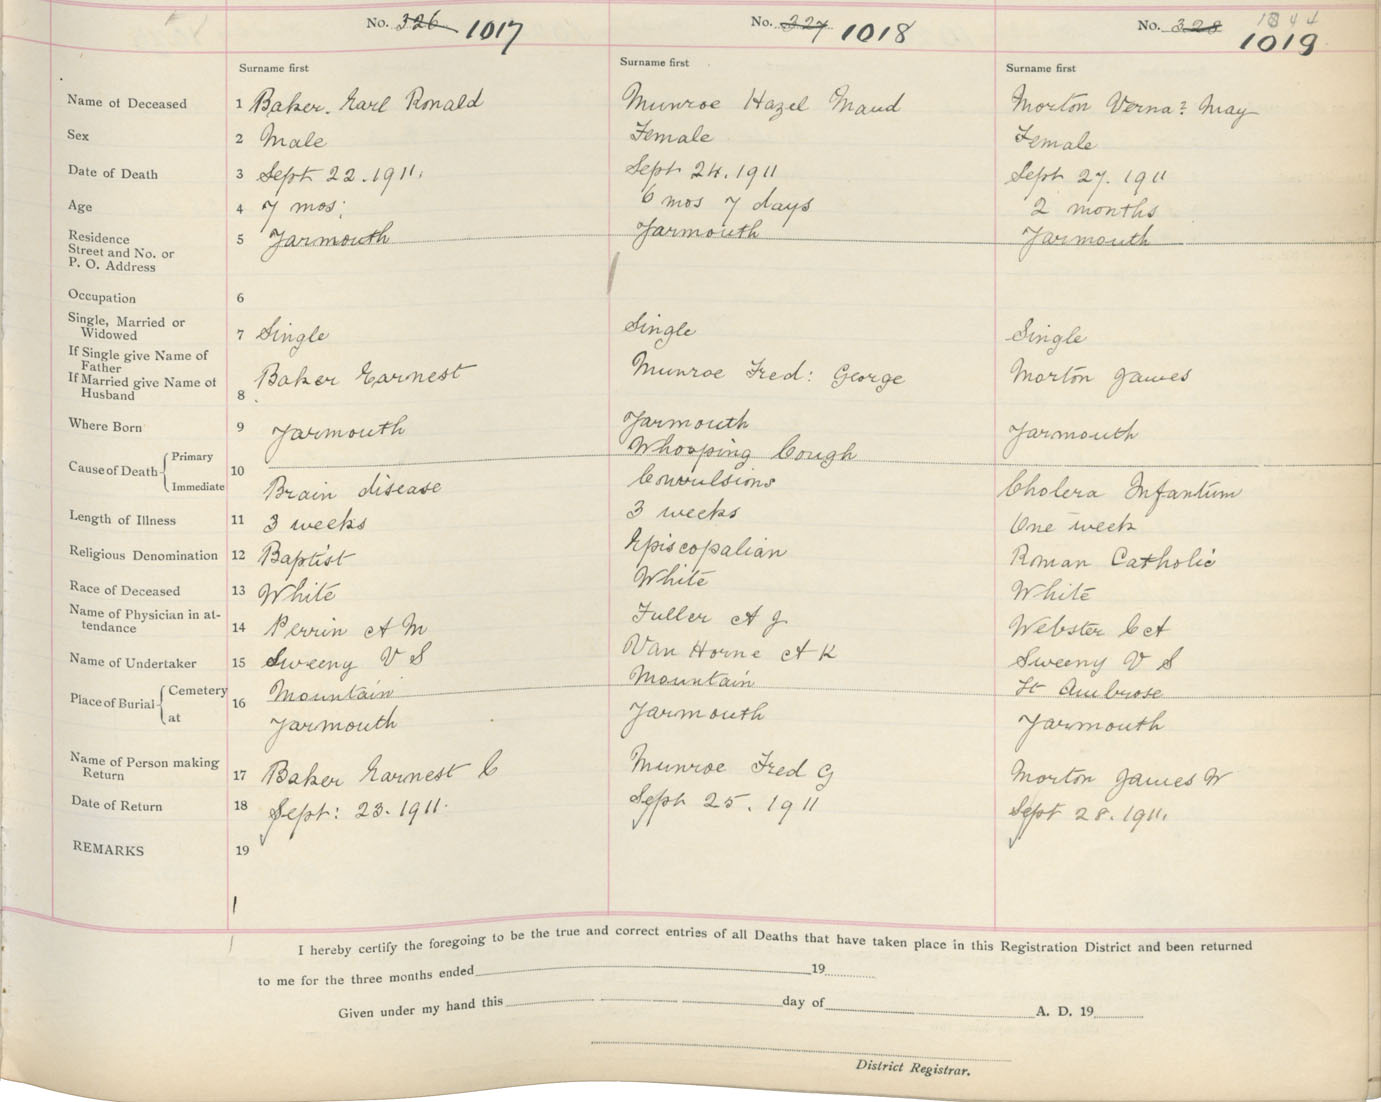 No. 326 1017 No. 327 1018 No. 328 1344 1019
Surname first Surname first Surname first
Name of Deceased 1 Baker. Earl Ronald Munroe Hazel Maud Morton Verna? May
Sex 2 Male Female Female
Date of Death 3 Sept 22. 1911. Sept 24. 1911 Sept 27. 1911
Age 4 7 mos: 6 mos 7 days 2 months
Residence
Street and No. or
P. O. Address 5 Yarmouth Yarmouth Yarmouth
Occupation 6
Single, Married or
Widowed 7 Single Single Single
If Single give Name of
Father
If Married give Name of
Husband 8 Baker Earnest Munroe Fred: George Morton James
Where Born 9 Yarmouth Yarmouth Yarmouth
Cause of Death 10 Primary Whooping Cough
Immediate Brain disease Convulsions Cholera Infantum
Length of Illness 11 3 weeks 3 weeks One week
Religious Denomination 12 Baptist Episcopalian Roman Catholic
Race of Deceased 13 White White White
Name of Physician in at-
tendance 14 Perrin A M Fuller A J Webster C A
Name of Undertaker 15 Sweeny V S Van Horne A K Sweeny V S
Place of Burial 16 Cemetery Mountain Mountain St Ambrose
at Yarmouth Yarmouth Yarmouth
Name of Person making
Return 17 Baker Earnest C Munroe Fred G Morton James W
Date of Return 18 Sept: 23. 1911. Sept 25. 1911 Sept 28. 1911.
REMARKS 19
I hereby certify the foregoing to be the true and correct entries of all Deaths that have taken place in this Registration District and been returned
to me for the three months ended 19
Given under my hand this day of A. D. 19
District Registrar.